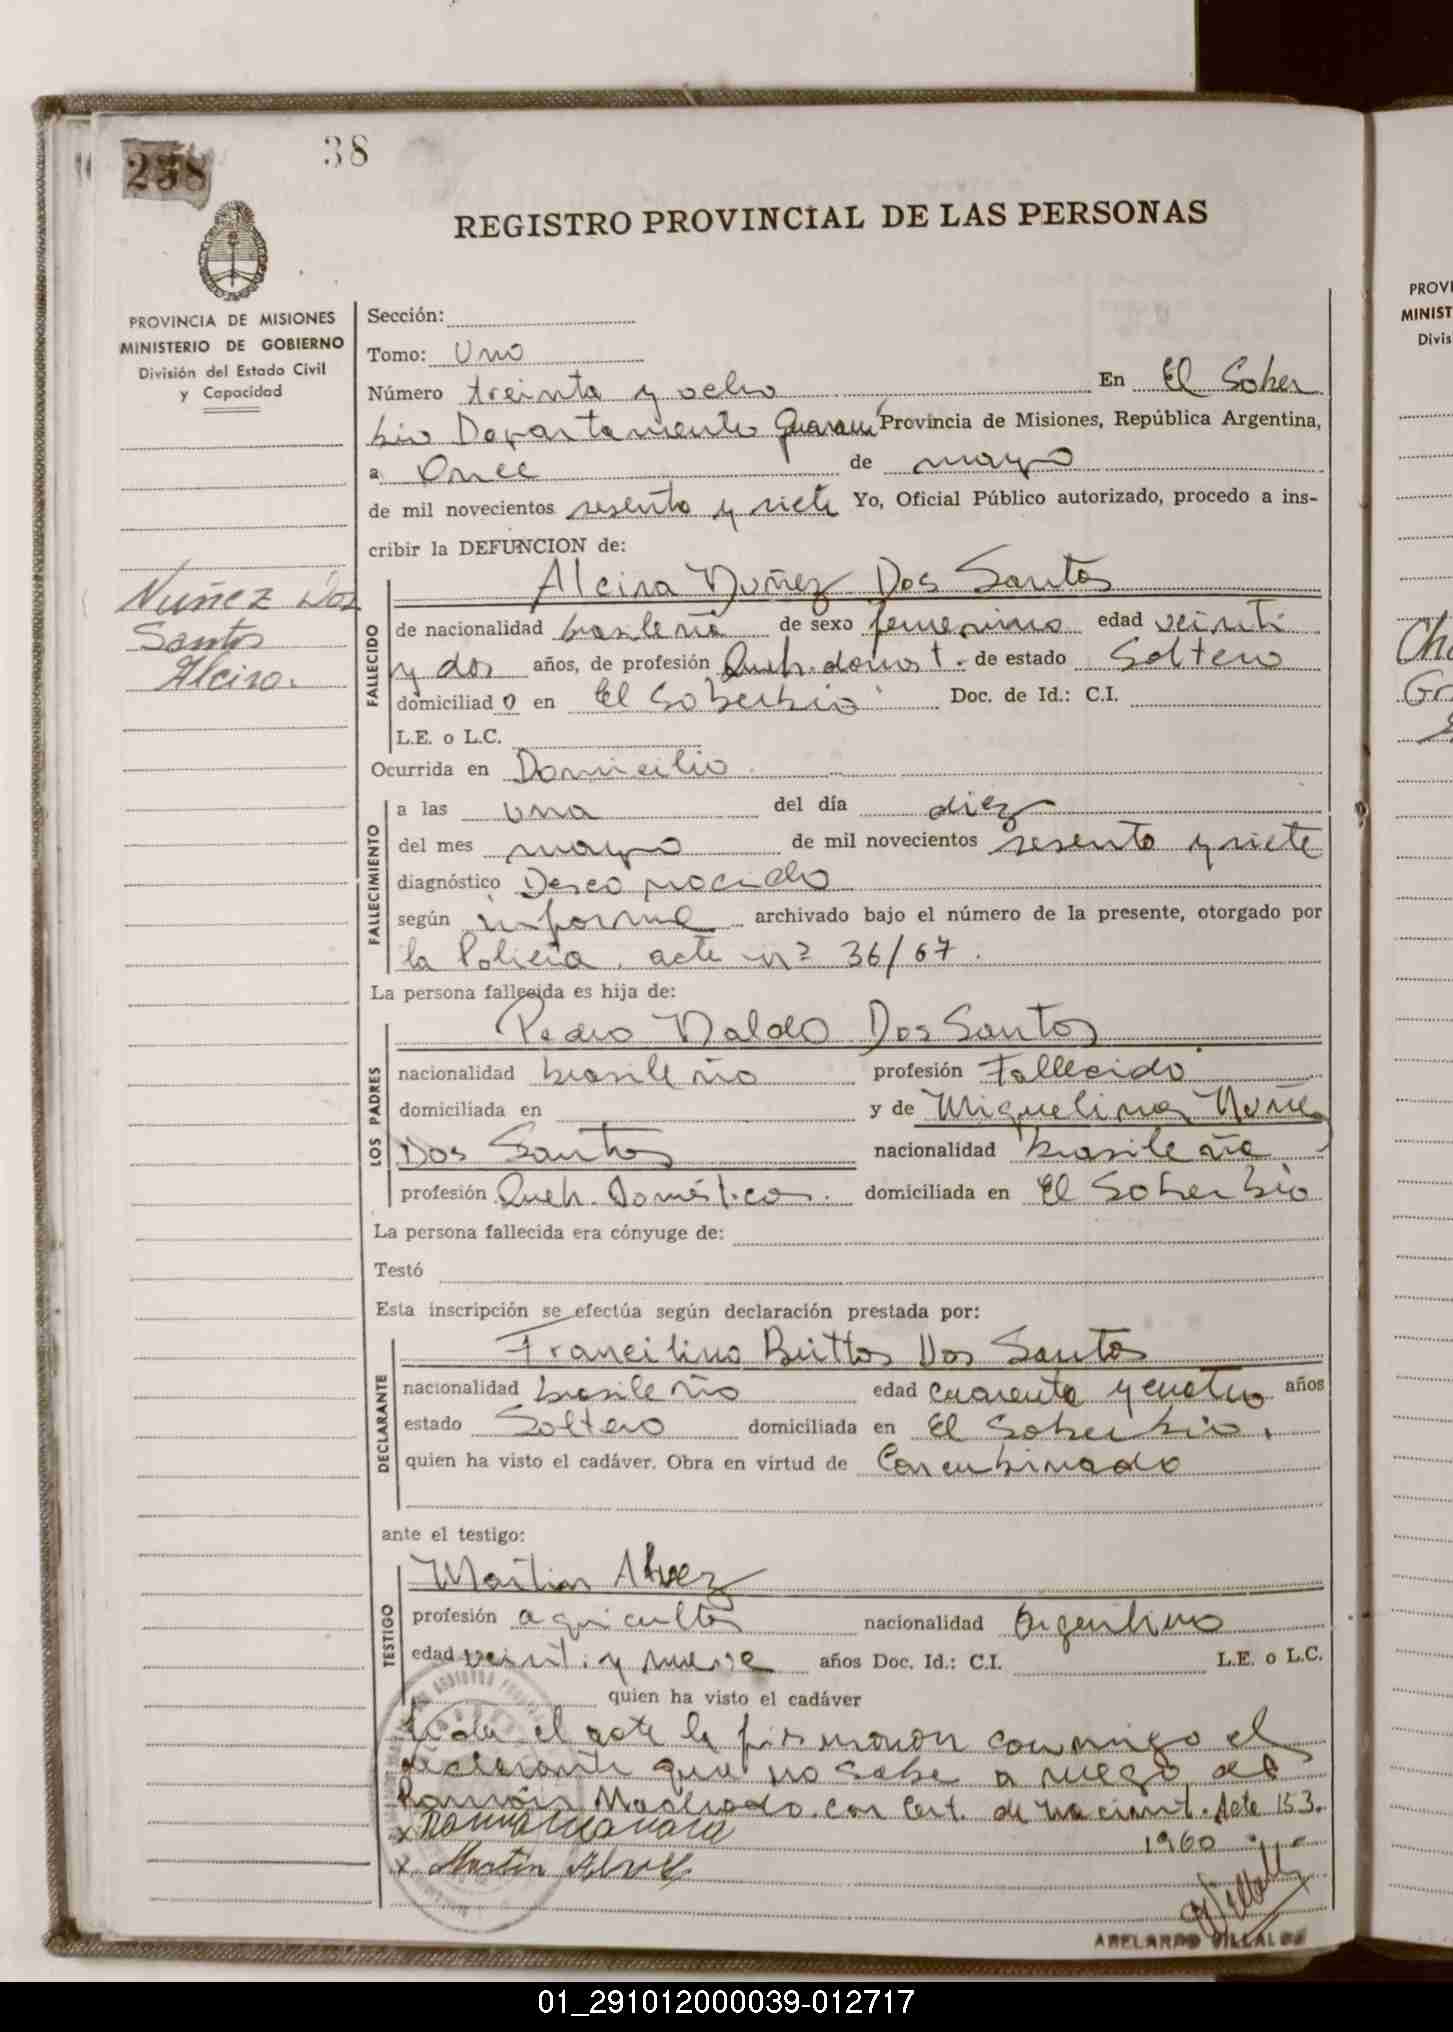 258
38
REGISTRO PROVINCIAL DE LAS PERSONAS
PROVINCIA DE MISIONES
MINISTERIO DE GOBIERNO
División del Estado Civil
y Capacidad
Nuñez Dos
Santos
Alcira.
Sección:
Tomo: Uno
Número treinta y ocho En El Sober
bio Departamento Guaraní Provincia de Misiones, República Argentina,
a Once de mayo
de mil novecientos sesenta y siete Yo, Oficial Público autorizado, procedo a ins-
cribir la DEFUNCION de:
FALLECIDO
Alcira Nuñez Dos Santos
de nacionalidad brasileña de sexo femenino edad veinti
y dos años, de profesión Queh. domest. de estado Soltero
domiciliado en El Soberbio Doc. de Id.: C.I.
L.E. o L.C.
Ocurrida en Domicilio
FALLECIMIENTO
a las una del día diez
del mes mayo de mil novecientos sesenta y siete
diagnóstico Desconocido
según informe archivado bajo el número de la presente, otorgado por
la Policía. acta nº 36/67.
La persona fallecida es hija de:
LOS PADRES
Pedro Naldo Dos Santos
nacionalidad brasileño profesión Fallecido
domiciliada en y de Miguelina Nuñez
Dos Santos nacionalidad brasileña
profesión Queh. Domésticos. domiciliada en El Soberbio
La persona fallecida era cónyuge de:
Testó
Esta inscripción se efectúa según declaración prestada por:
DECLARANTE
Francilino Brittos Dos Santos
nacionalidad brasileño edad cuarenta y cuatro años
estado Soltero domiciliada en El Soberbio.
quien ha visto el cadáver. Obra en virtud de Concubinado
ante el testigo:
TESTIGO
Martin Alvez
profesión agricultor nacionalidad Argentino
edad veinti y nueve años Doc. Id.: C.I. L.E. o L.C.
quien ha visto el cadáver
Leida el acta la firmaron conmigo el
declarante que no sabe a ruego del
Ramón Machado. con Cert. de nacimt. Acta 153.
1960
Martin Alvez
ABELARDO VILLALBA
PROVI
MINIST
Divis
01_291012000039-012717